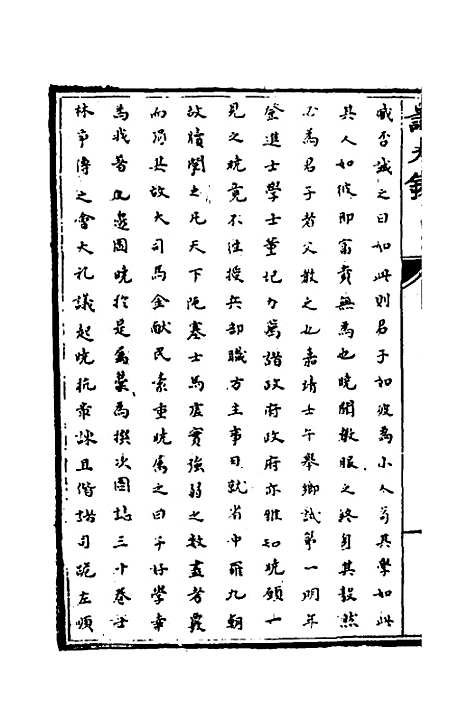 臧否誡之曰如此則君子如彼爲小人苟其學如此
其人如彼即富貴無爲也曉聞教服之終身其毅然
不爲君子者父教之也嘉靖壬午舉鄉試第一明年
登進士學士董玘力薦諸政府政府亦雅知曉願一
見之曉竟不往授兵部職方主事日就省中羅九朝
故牘閱之凡天下阨塞士馬虛實強弱之數盡者聚
而得其故大司馬金獻民素重曉屬之曰子好學幸
爲我著九邊圖曉於是爲撰次圖誌三十卷士
林爭傳之會大禮議起曉抗章諫且偕諸司跪左順